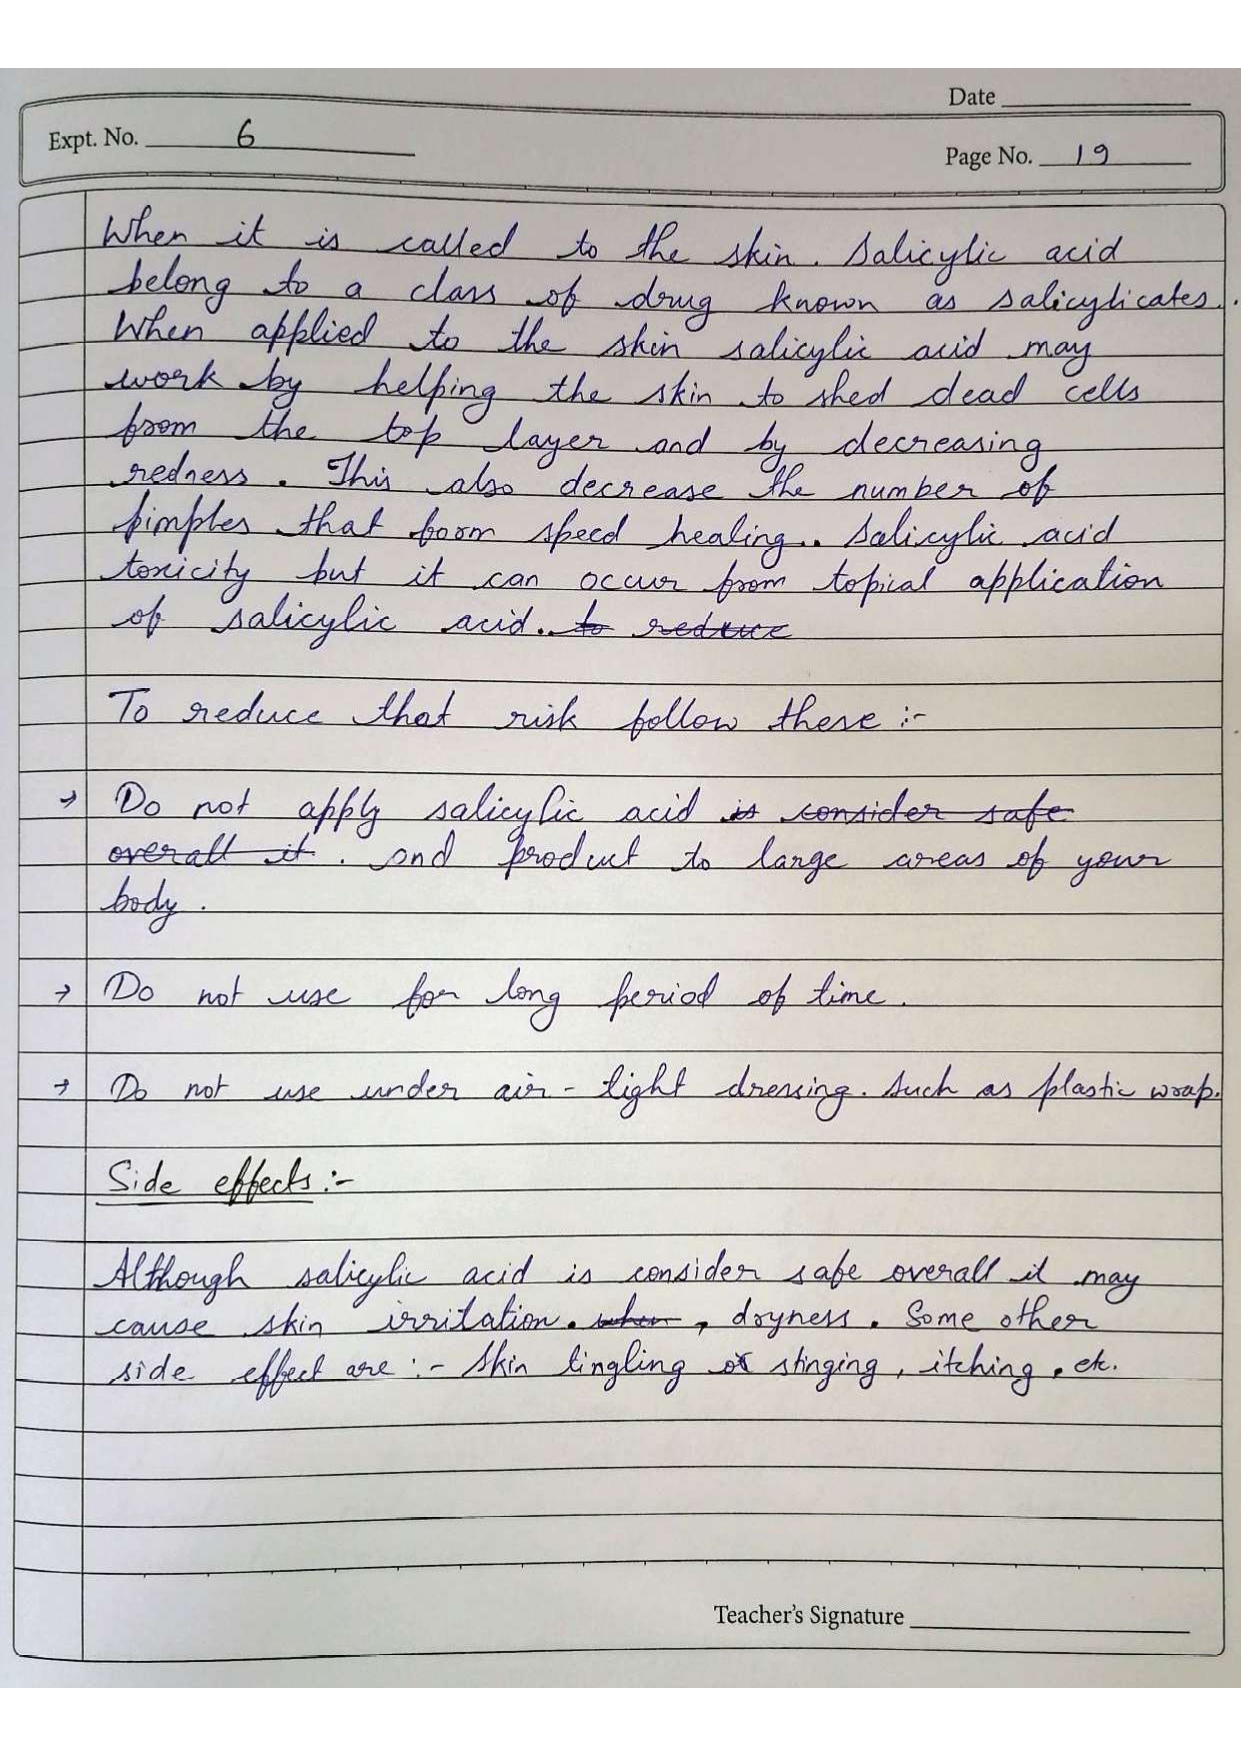 Date
Expt. No. 6
Page No. 19
When it is called to the skin. Salicylic acid
belong to a class of drug known as salicylicates.
When applied to the skin salicylic acid may
work by helping the skin to shed dead cells
from the top layer and by decreasing
redness. This also decrease the number of
pimples that form speed healing.. Salicylic acid
toxicity but it can occur from topical application
of salicylic acid. to reduce
To reduce that risk follow these :-
→ Do not apply salicylic acid is consider safe
overall it . and product to large areas of your
body.
→ Do not use for long period of time.
→ Do not use under air-tight dressing. Such as plastic wrap.
Side effects :-
Although salicylic acid is consider safe overall it may
cause skin irritation. when , dryness. Some other
side effect are :- Skin tingling or stinging, itching, etc.
Teacher's Signature